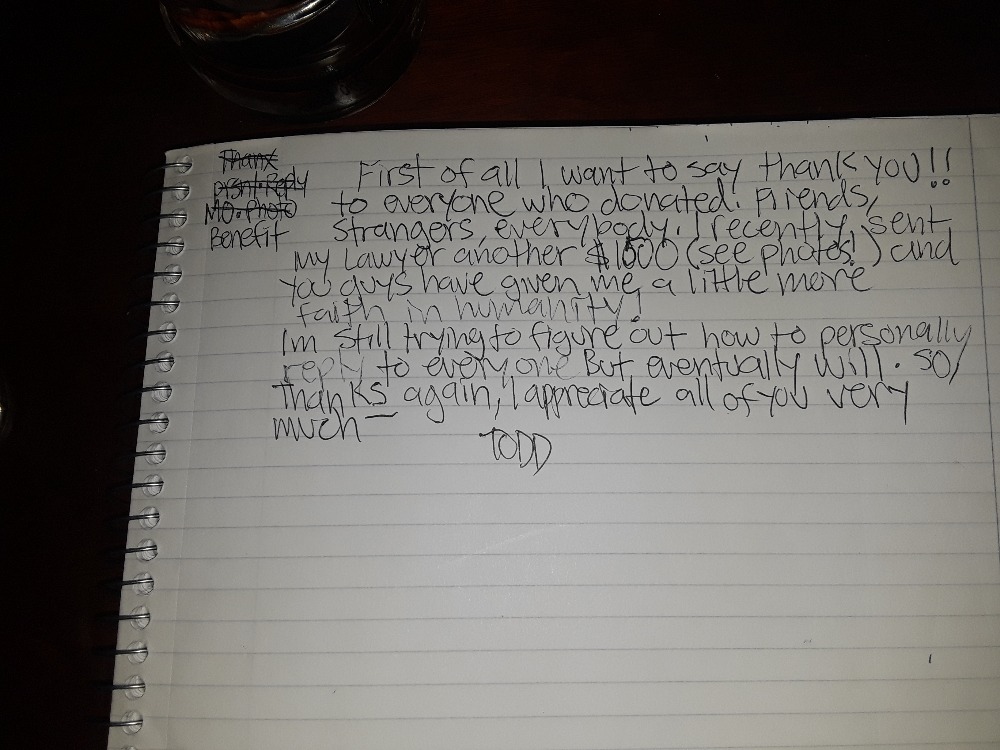 Thanx
Prsnl. Reply
MO. Photo
Benefit
First of all I want to say thank you!!
to everyone who donated. Friends,
strangers, everybody. I recently sent
my lawyer another $1000 (see photos!) and
you guys have given me a little more
faith in humanity!
Im still trying to figure out how to personally
reply to everyone But eventually will. So,
thanks again, I appreciate all of you very
much—
TODD